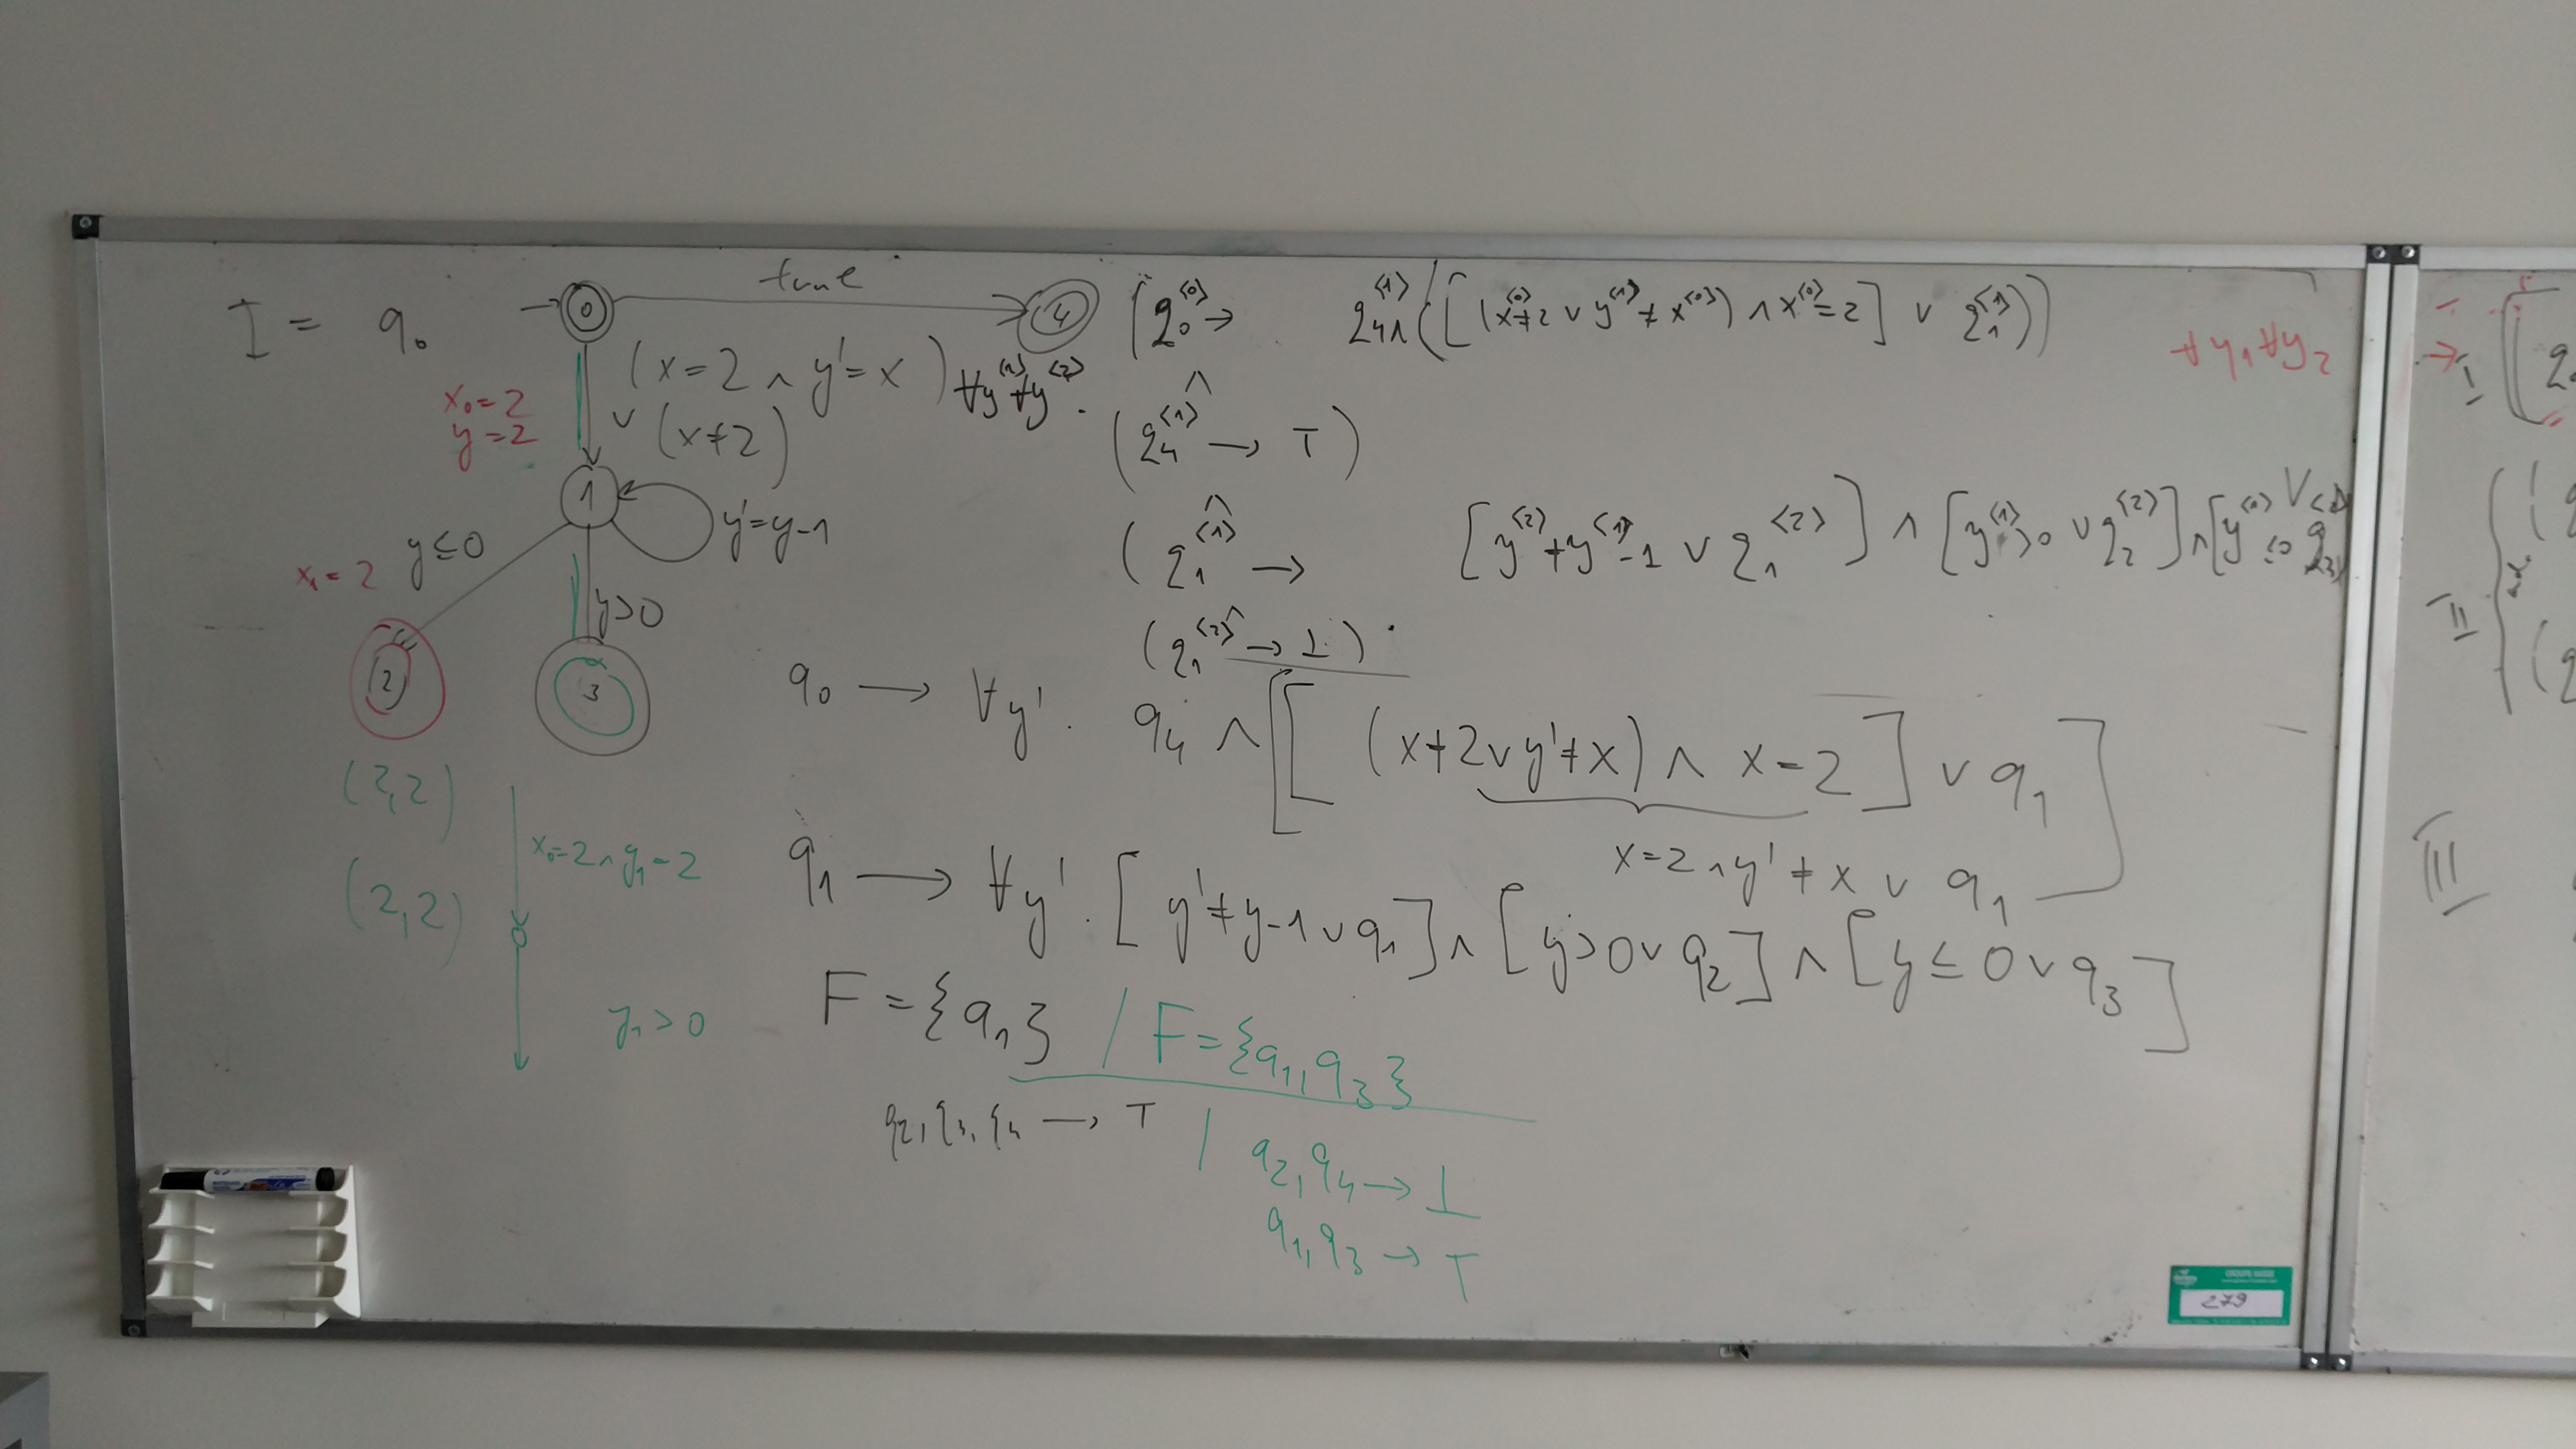 I = q₀
→ 0
true
4
(x=2 ∧ y'=x)
∨ (x≠2)
x₀=2
y=2
1
y'=y-1
y≤0
x₁=2
y>0
2
3
(2,2)
(2,2)
x₀=2 ∧ y₁=2
y₁>0
∀y⁽¹⁾∀y⁽²⁾.
(q₀⁽⁰⁾ → q₄⁽¹⁾ ∧ ([(x⁽⁰⁾≠2 ∨ y⁽¹⁾≠x⁽⁰⁾) ∧ x⁽⁰⁾=2] ∨ q₁⁽¹⁾))
∧
(q₄⁽¹⁾ → ⊤)
∧
(q₁⁽¹⁾ → [y⁽²⁾≠y⁽¹⁾-1 ∨ q₁⁽²⁾] ∧ [y⁽¹⁾>0 ∨ q₂⁽²⁾] ∧ [y⁽¹⁾≤0 ∨ q₃⁽²⁾]
∧
(q₁⁽²⁾ → ⊥)
∀y₁∀y₂
q₀ → ∀y'. q₄ ∧ [[(x≠2 ∨ y'≠x) ∧ x=2] ∨ q₁]
x=2 ∧ y'≠x ∨ q₁
q₁ → ∀y'. [y'≠y-1 ∨ q₁] ∧ [y>0 ∨ q₂] ∧ [y≤0 ∨ q₃]
F = {q₁} / F = {q₁, q₃}
q₂, q₃, q₄ → ⊤ / q₂, q₄ → ⊥
q₁, q₃ → ⊤
279
I
II
III